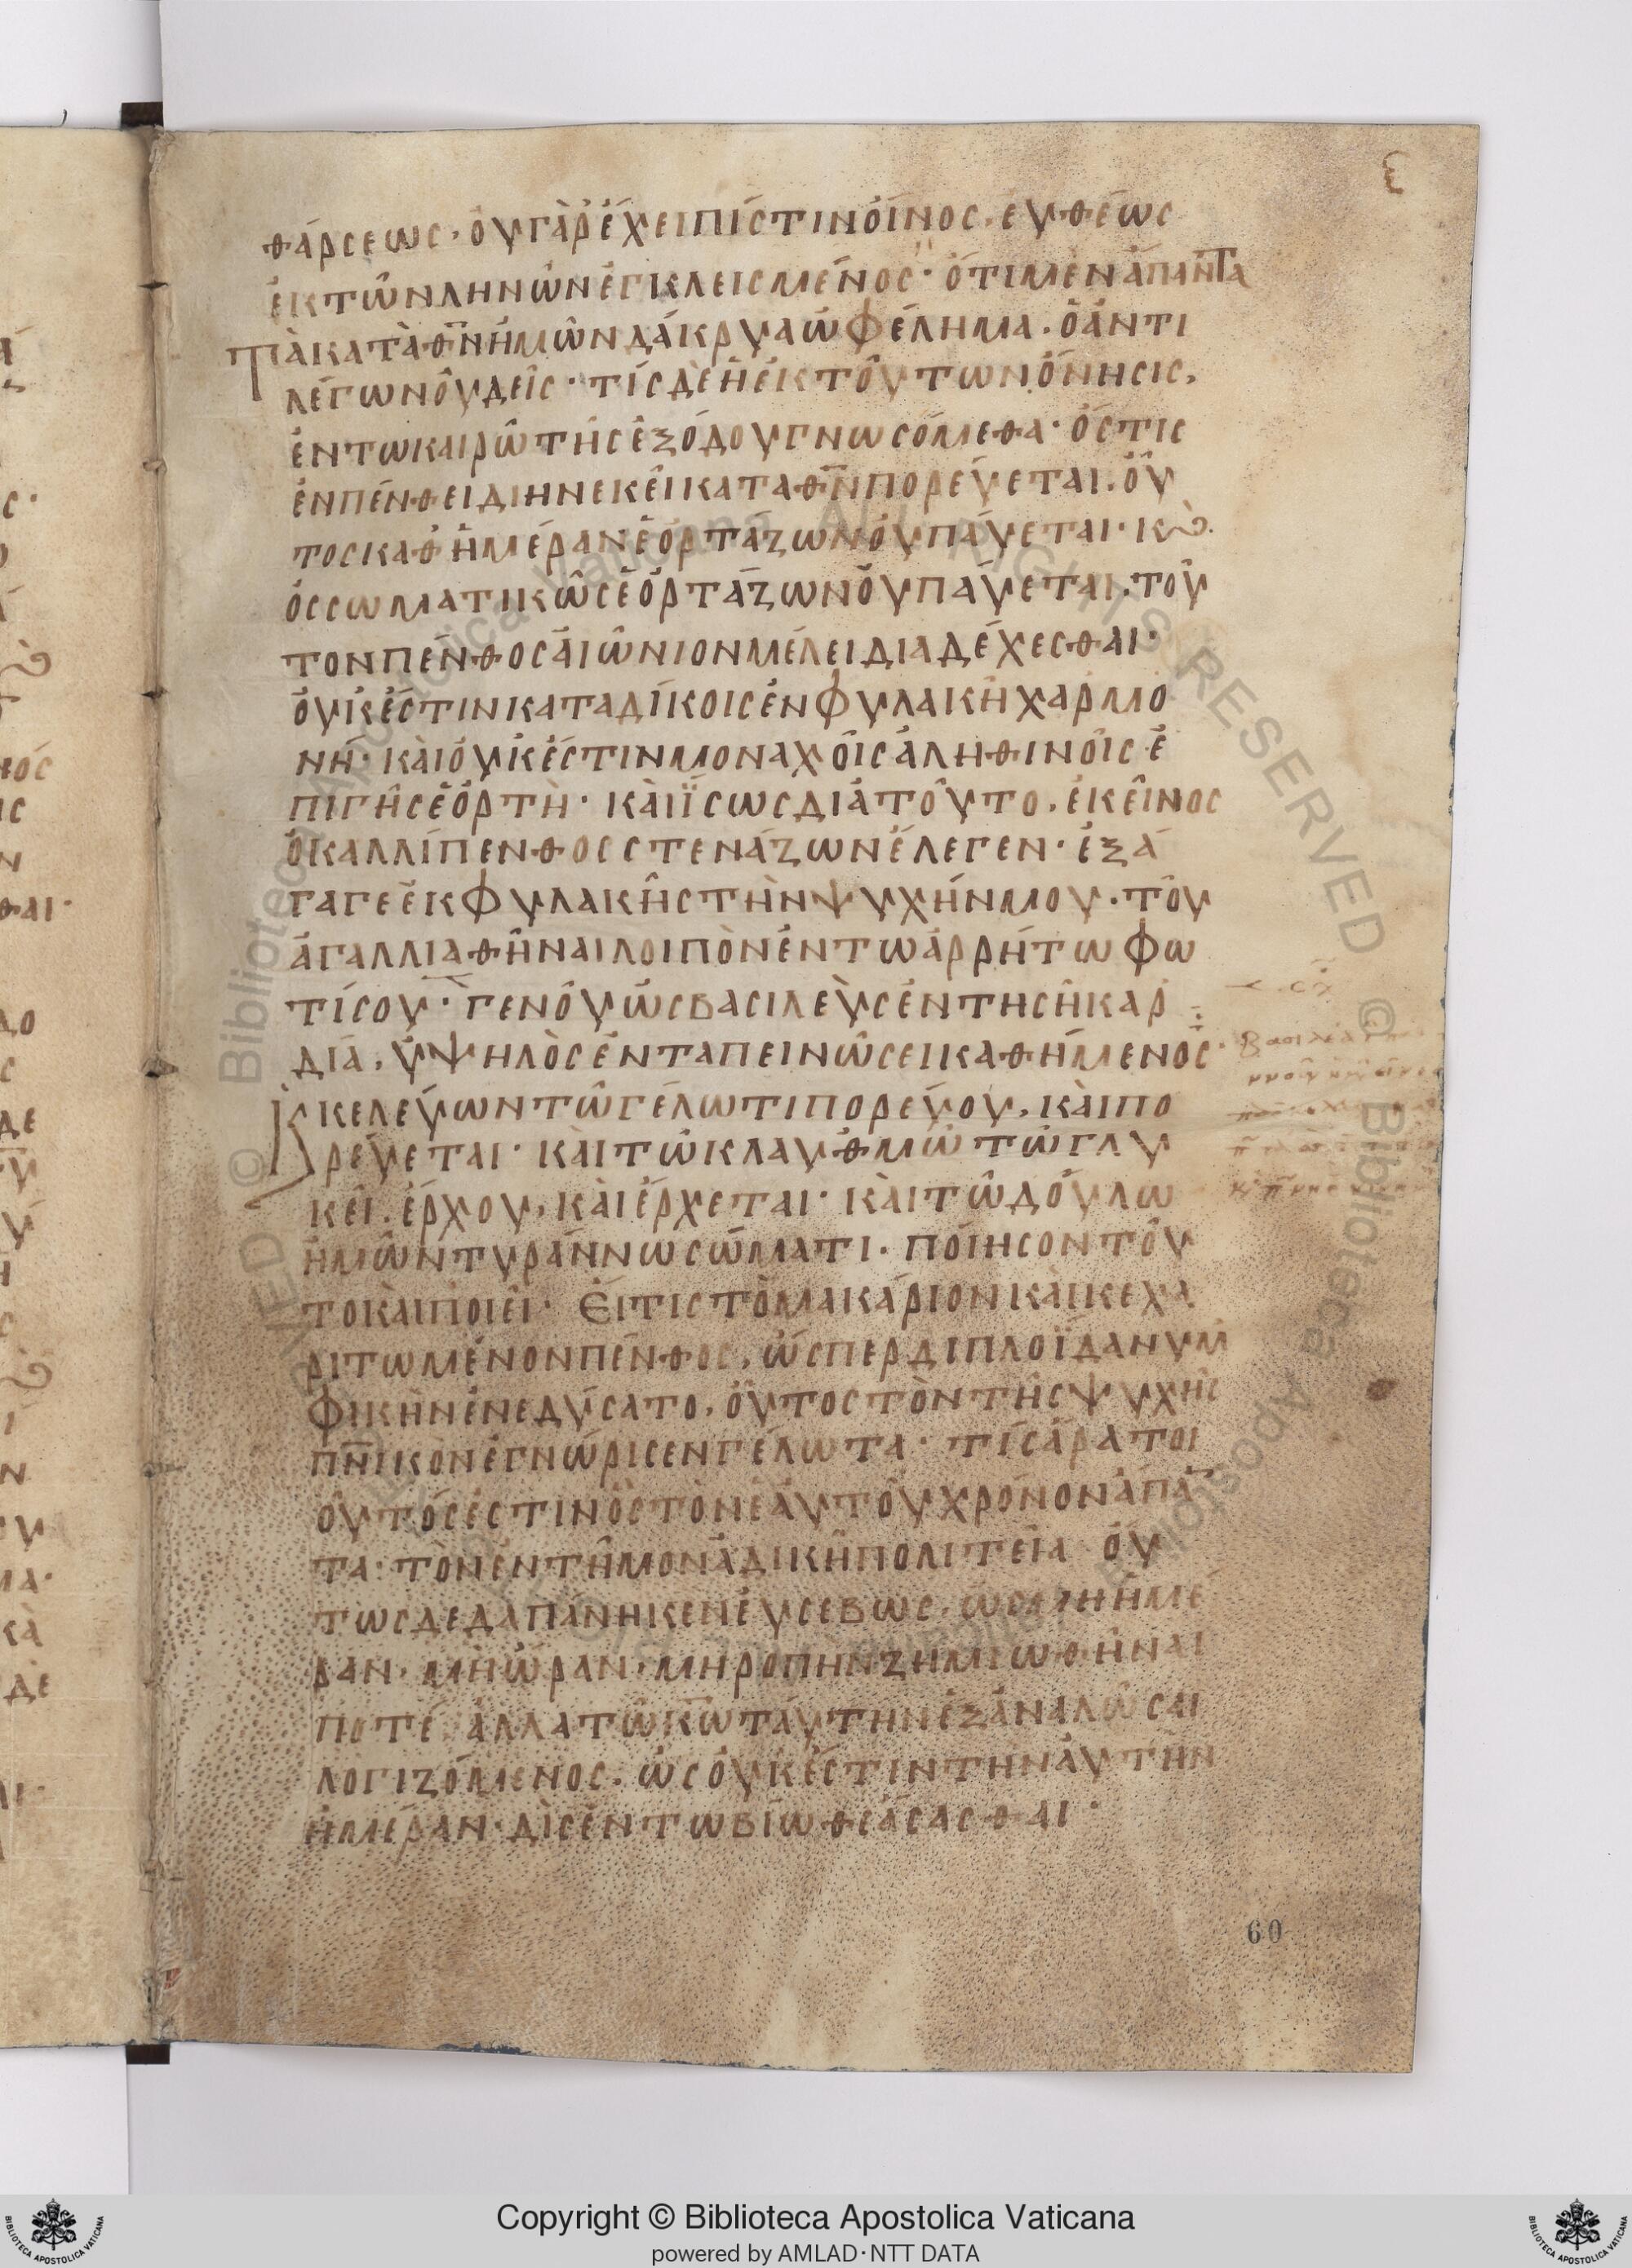 ε
θάρσεως· ὀυγὰρ ἔχει πίστιν ὀίνος, ευθέως
ἐκ τῶν ληνῶν ἐγκλεισμένος· ὅτι μὲν ἅπαντα
τὰ κατὰ θν̅ ἡμῶν δάκρυα ὠφέλημα. ὁ ἀντι
λέγων ὀυδεὶς· τίς δὲ ἡ ἐκ τούτων ὄνησις,
ἐν τω καιρῶ τῆς ἐξόδου γνωσόμεθα· ὅστις
ἐν πένθει διηνεκεῖ κατα θν̅ πορεύεται. ὅυ
τος καθ ἡμέραν ἑορτάζων ὀυ παύεται· κ
ὁ σωματικῶς ἑορτάζων ὀυ παύεται. τοῦ
τον πένθος ἀιώνιον μέλει διαδέχεσθαι·
ὀυκ ἔστιν καταδίκοις ἐν φυλακῆ χαρμο
νή· κὰι ὀυκ ἔστιν μοναχοῖς ἀληθινοῖς ἐ
πι γῆς ἑορτὴ· κὰι ἴσως διὰ τοῦτο, ἐκεῖνος
ὁ καλλίπενθος στενάζων ἔλεγεν· ἐξά
γαγε ἐκ φυλακῆς τὴν ψυχήν μου. τοῦ
ἀγαλλιαθῆναι λοιπὸν ἐν τω ἀρρήτω φω
τί σου· γενοῦ ὡς βασιλεὺς ἐν τη σῆ καρ
δία, ὑψηλὸς ἐν ταπεινώσει καθήμενος·
κ κελεύων τῶ γέλωτι πορεύου, κὰι πο
ρεύεται· κὰι τῶ κλαυθμῶ τῶ γλυ
κεῖ. ἔρχου, κὰι ἔρχεται· κὰι τῶ δούλω
ἡμῶν τυράννω σώματι. ποίησον τοῦ
το κὰι ποιεῖ· ἔι τις τὸ μακάριον κὰι κεχα
ριτωμένον πένθος, ὥσπερ διπλοΐδα νυμ
φικὴν ἐνεδύσατο, ὅυτος τὸν τῆς ψυχῆς
πν̅ικὸν ἐγνώρισεν γέλωτα· τίς ἄρα τοι
οῦτός ἐστιν ὃς τὸν ἑαυτοῦ χρόνον ἅπα
τα· τὸν ἐν τῆ μοναδικῆ πολιτεία ὅυ
τως δεδαπάνηκεν ἐυσεβως, ὡς μὴ ἡμέ
ραν, μὴ ὥραν, μὴ ροπὴν ζημιωθῆναι
ποτέ, ἀλλα τῶ κω̅ ταύτην ἐξαναλῶσαι
λογιζόμενος, ὡς ὀυκ ἔστιν την ἀυτὴν
ἡμέραν· δὶς ἐν τω βίω θεάσασθαι·
60
Copyright © Biblioteca Apostolica Vaticana
powered by AMLAD·NTT DATA